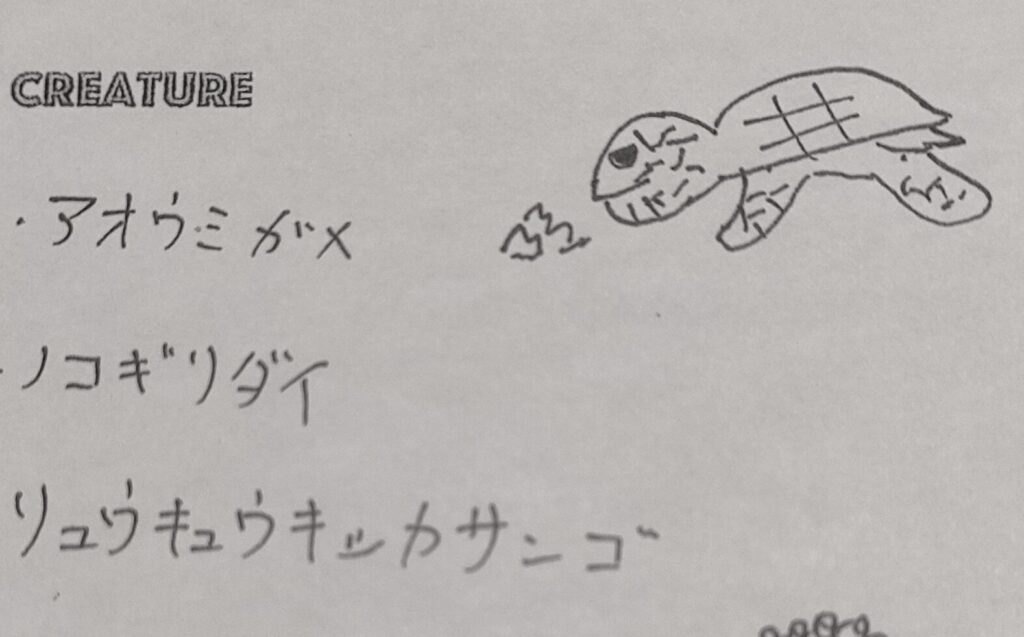 CREATURE
・アオウミガメ
・ノコギリダイ
リュウキュウキッカサンゴ